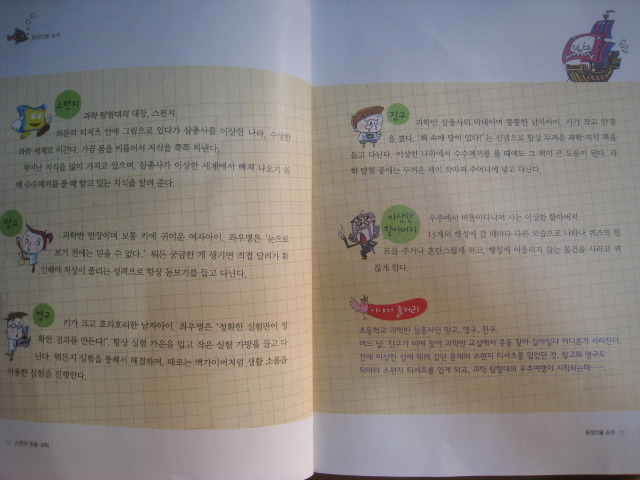 등장인물 소개
스펀지
과학 탐험대의 대장, 스펀지.
의문의 티셔츠 안에 그림으로 있다가 삼총사를 이상한 나라, 수상한
과학 세계로 이끈다. 가끔 몸을 비틀어서 지식을 쭉쭉 짜낸다.
재미난 지식을 많이 가지고 있으며, 삼총사가 이상한 세계에서 빠져 나오기 위
해 수수께끼를 풀 때 알고 있는 지식을 알려 준다.
망고
과학반 반장이며 보통 키에 귀여운 여자아이. 좌우명은 '눈으로
보기 전에는 믿을 수 없다.' 뭐든 궁금한 게 생기면 직접 달려가 확
인해야 직성이 풀리는 성격으로 항상 돋보기를 들고 다닌다.
영구
키가 크고 호리호리한 남자아이. 좌우명은 '정확한 실험만이 정
확한 결과를 만든다!'. 항상 실험 가운을 입고 작은 실험 가방을 들고 다
닌다. 뭐든지 실험을 통해서 해결하며, 때로는 맥가이버처럼 생활 소품을
이용한 실험을 진행한다.
12 스펀지 초등 과학
진구
과학반 삼총사의 막내이며 통통한 남자아이. 키가 작고 안경
을 썼다. '책 속에 답이 있다!'는 신념으로 항상 두꺼운 과학 지식 책을
들고 다닌다. 이상한 나라에서 수수께끼를 풀 때에도 그 책이 큰 도움이 된다. 과
학 탐험 중에는 두꺼운 책이 작아져 주머니에 넣고 다닌다.
이상한
할아버지
우주에서 떠돌이다니며 사는 이상한 할아버지.
13개의 행성에 갈 때마다 다른 모습으로 나타나 퀴즈의 힌
트를 주거나 혼란스럽게 하고, 행성에 어울리지 않는 물건을 사라고 귀
찮게 한다.
이야기 줄거리
초등학교 과학반 삼총사인 망고, 영구, 진구.
어느 날, 진구가 비에 젖어 과학반 교실에서 옷을 찾아 갈아입다 어디론가 사라진다.
전에 이상한 성에 데려 갔던 문제의 스펀지 티셔츠를 입었던 것. 망고와 영구도
뒤따라 스펀지 티셔츠를 입게 되고, 과학 탐험대의 우주여행이 시작되는데……
등장인물 소개 13